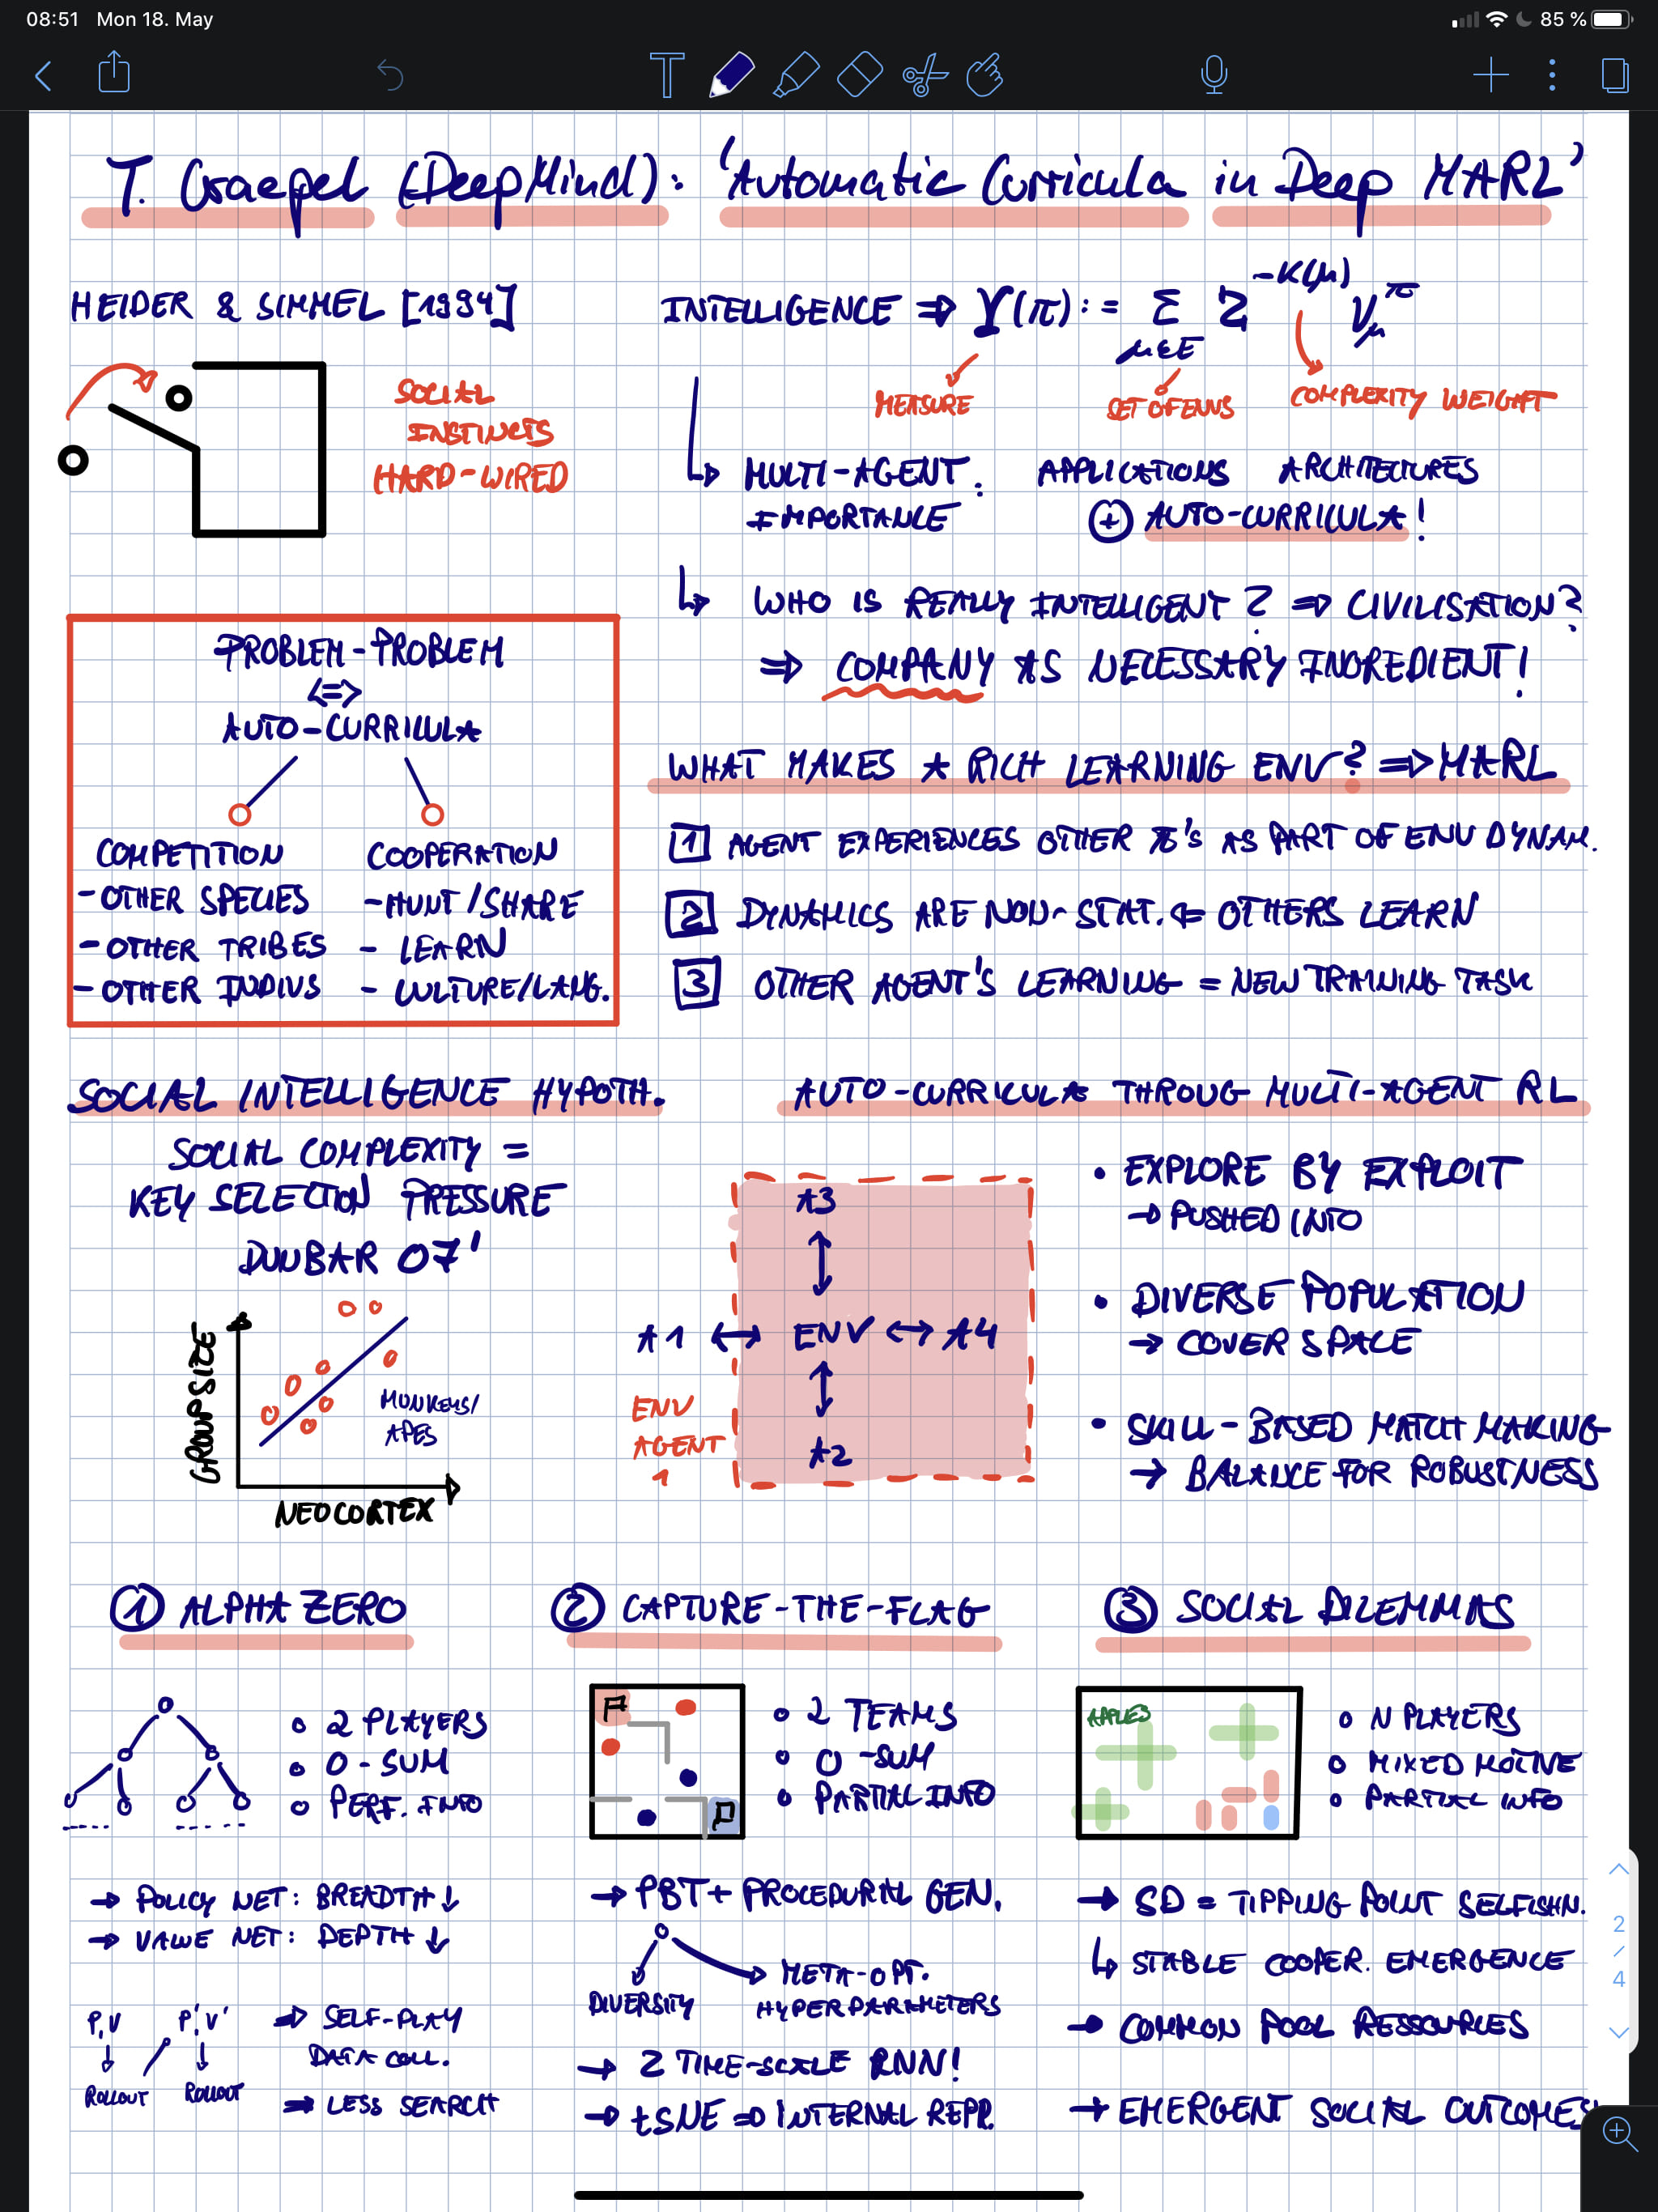 08:51 Mon 18. May
85 %
T. Graepel (DeepMind): 'Automatic Curricula in Deep MARL'
HEIDER & SIMMEL [1994]
SOCIAL
INSTINCTS
HARD-WIRED
INTELLIGENCE ⇒ Υ(π) := Σ 2 -K(μ) V π μ
μ∈E
MEASURE
SET OF ENVS
COMPLEXITY WEIGHT
↳ MULTI-AGENT: APPLICATIONS ARCHITECTURES
IMPORTANCE ⊕ AUTO-CURRICULA!
↳ WHO IS REALLY INTELLIGENT? ⇒ CIVILISATION?
⇒ COMPANY AS NECESSARY INGREDIENT!
PROBLEM-PROBLEM
<=>
AUTO-CURRICULA
COMPETITION
- OTHER SPECIES
- OTHER TRIBES
- OTHER INDIVS
COOPERATION
- HUNT/SHARE
- LEARN
- CULTURE/LANG.
WHAT MAKES A RICH LEARNING ENV? ⇒ MARL
1 AGENT EXPERIENCES OTHER π's AS PART OF ENV DYNAM.
2 DYNAMICS ARE NON-STAT. ⇐ OTHERS LEARN
3 OTHER AGENT'S LEARNING = NEW TRAINING TASK
SOCIAL INTELLIGENCE HYPOTH.
SOCIAL COMPLEXITY =
KEY SELECTION PRESSURE
DUNBAR 07'
GROUPSIZE
MONKEYS/
APES
NEOCORTEX
AUTO-CURRICULA THROUG MULTI-AGENT RL
A3
A1 ↔ ENV ↔ A4
A2
ENV
AGENT
1
• EXPLORE BY EXPLOIT
→ PUSHED INTO
• DIVERSE POPULATION
→ COVER SPACE
• SKILL-BASED MATCH MAKING
→ BALANCE FOR ROBUSTNESS
① ALPHA ZERO
o 2 PLAYERS
o 0-SUM
o PERF. INFO
→ POLICY NET: BREADTH ↓
→ VALUE NET: DEPTH ↓
P,V P',V'
ROLLOUT ROLLOUT
⇒ SELF-PLAY
DATA COLL.
⇒ LESS SEARCH
② CAPTURE-THE-FLAG
o 2 TEAMS
o 0-SUM
o PARTIAL INFO
→ PBT + PROCEDURAL GEN.
DIVERSITY
META-OPT.
HYPERPARAMETERS
→ 2 TIME-SCALE RNN!
→ tSNE ⇒ INTERNAL REPR.
③ SOCIAL DILEMMAS
APPLES
o N PLAYERS
o MIXED MOTIVE
o PARTIAL INFO
→ SD = TIPPING POINT SELFISHN.
↳ STABLE COOPER. EMERGENCE
→ COMMON POOL RESSOURCES
→ EMERGENT SOCIAL OUTCOMES
2
/
4